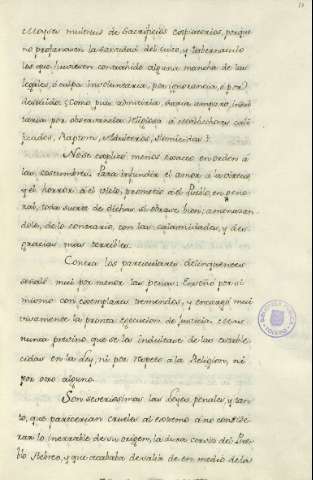 mayor multitud de Sacrificios Expiatorios, porque
no profanasen la santidad del culto, y tabernaculo
los que huviesen contrahido alguna mancha de las
legales, ó culpa involuntaria, por ignorancia, ó por
descuido; ¿Como pues admitiria, daria amparo,
por observancia Religiosa á malhechores cali-
ficados, Raptores, Adulteros, Homicidas?
No se explicó menos zeloso en orden á
las costumbres. Para infundir el amor á la virtud
y el horror á el vicio, prometió á el Pueblo, en gene-
ral, toda suerte de dichas, si obrase bien; amenazan-
dole, de lo contrario, con las calamidades, y des-
gracias mas terribles.
Contra los particulares delinquentes
señaló mui por menor las penas: Enseñó por si
mismo con exemplares tremendos, y encargó
la pronta execucion de justicia,
nunca previno, que se les indultase de las estable-
cidas en la Ley, ni por respeto a la Religion, ni
por otro alguno.
Son severissimas las Leyes penales, y tan-
to, que parecerian crueles al extremo á no conside-
rar lo inerrable de su origen, la dura cerviz del Pue-
blo Hebreo, y que acababa de salir de en medio de la